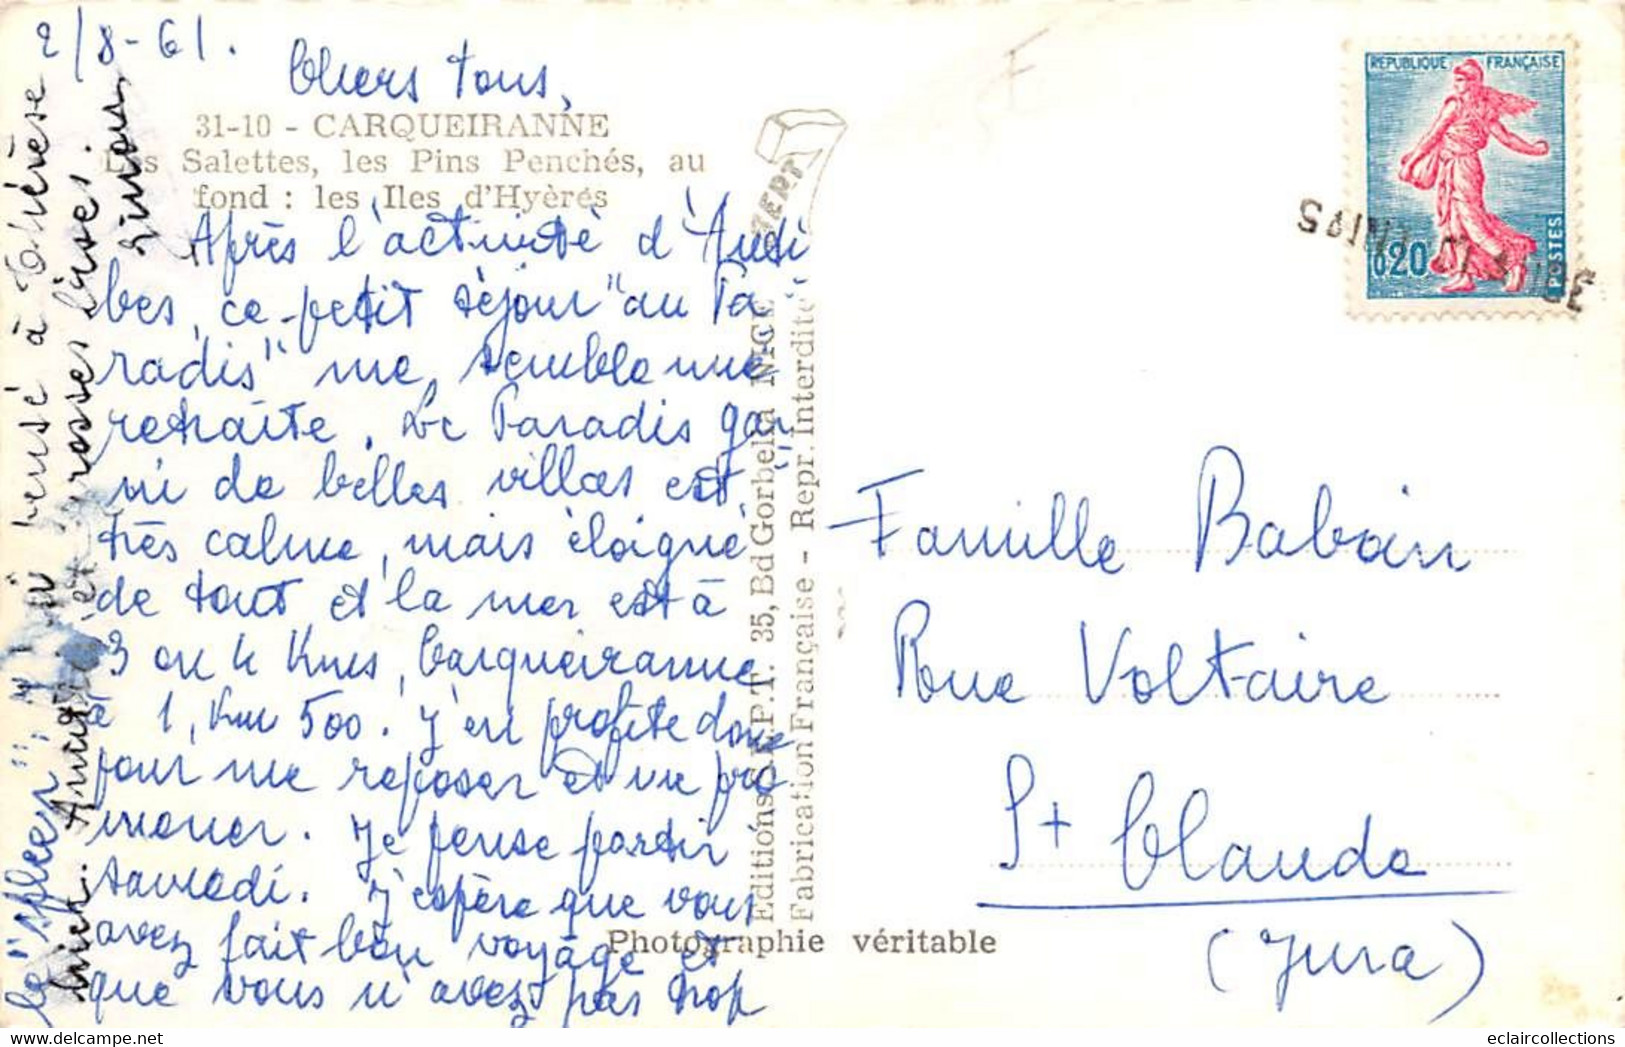 2/8-61.
Chers tous,
31-10 - CARQUEIRANNE
Les Salettes, les Pins Penchés, au
fond : les Iles d'Hyères
Après l'activité d'Anti
bes, ce petit séjour "au Pa
radis" me semble une
retraite. Le Paradis gar
ni de belles villas est
très calme, mais éloigné
de tout et la mer est à
3 ou 4 Kms, Carqueiranne
à 1, Km 500. J'en profite donc
pour me reposer et me pro
mener. Je pense partir
samedi. J'espère que vous
avez fait bon voyage et
que vous n'avez pas trop
le "spleen",
pensé à Thérèse
bien. Amitiés et grosses bises.
Simone
Editions S.E.P.T. 35, Bd Gorbella NICE
Fabrication Française - Repr. Interdite
Photographie véritable
REPUBLIQUE FRANÇAISE
0,20
POSTES
Famille Baboin
Rue Voltaire
St Claude
(Jura)
eclaircollections